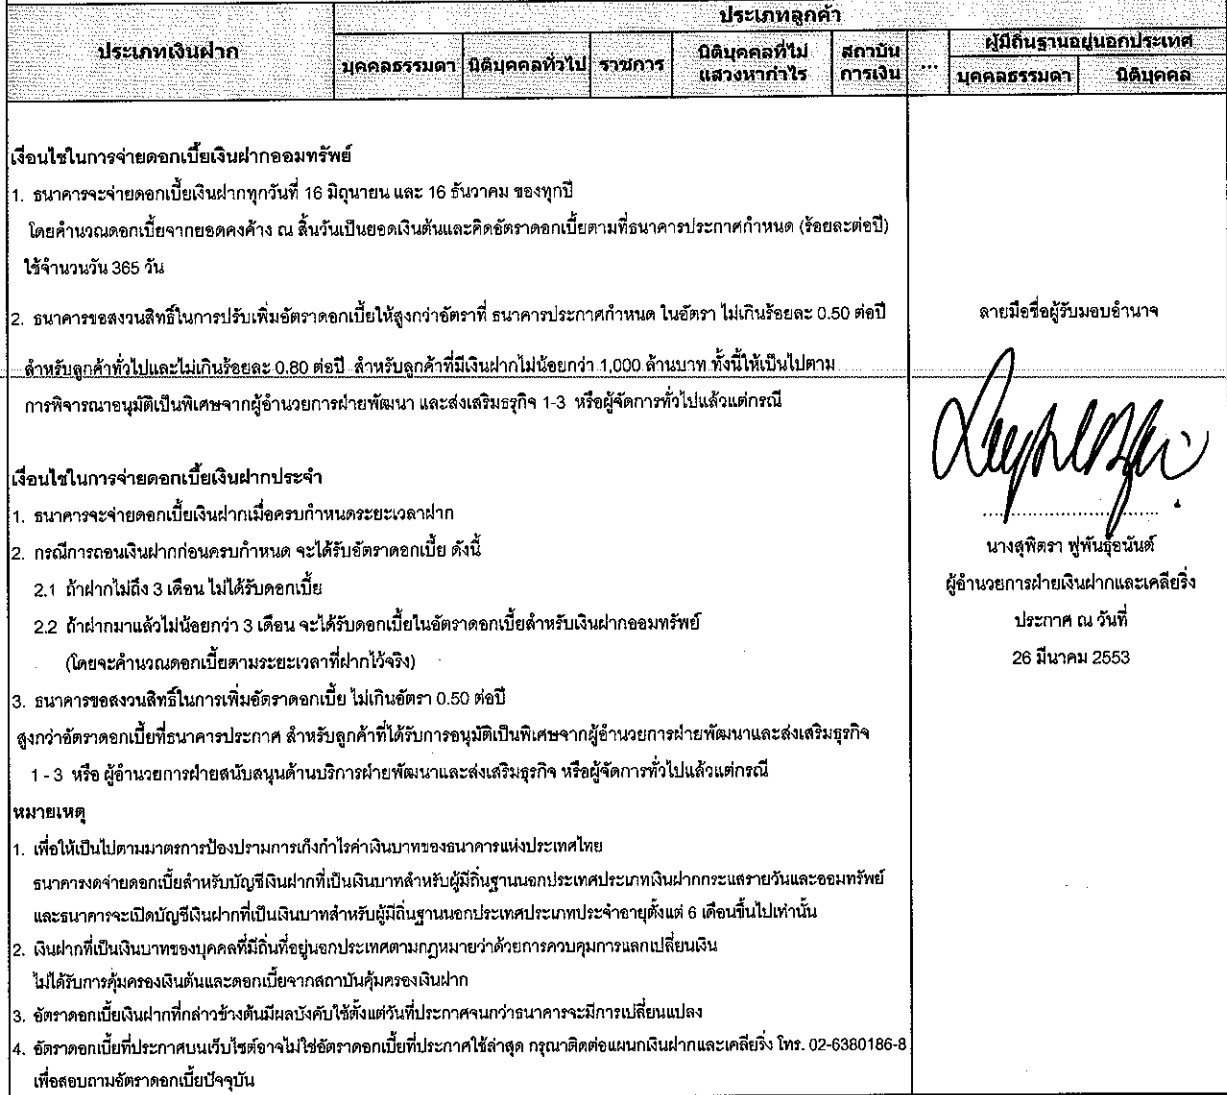 ประเภทเงินฝาก
ประเภทลูกค้า
บุคคลธรรมดา นิติบุคคลทั่วไป ราชการ นิติบุคคลที่ไม่แสวงหากำไร สถาบันการเงิน ... ผู้มีถิ่นฐานอยู่นอกประเทศ
บุคคลธรรมดา นิติบุคคล
เงื่อนไขในการจ่ายดอกเบี้ยเงินฝากออมทรัพย์
1. ธนาคารจะจ่ายดอกเบี้ยเงินฝากทุกวันที่ 16 มิถุนายน และ 16 ธันวาคม ของทุกปี
โดยคำนวณดอกเบี้ยจากยอดคงค้าง ณ สิ้นวันเป็นยอดเงินต้นและคิดอัตราดอกเบี้ยตามที่ธนาคารประกาศกำหนด (ร้อยละต่อปี)
ใช้จำนวนวัน 365 วัน
2. ธนาคารขอสงวนสิทธิ์ในการปรับเพิ่มอัตราดอกเบี้ยให้สูงกว่าอัตราที่ ธนาคารประกาศกำหนด ในอัตรา ไม่เกินร้อยละ 0.50 ต่อปี
สำหรับลูกค้าทั่วไปและไม่เกินร้อยละ 0.80 ต่อปี สำหรับลูกค้าที่มีเงินฝากไม่น้อยกว่า 1,000 ล้านบาท ทั้งนี้ให้เป็นไปตาม
การพิจารณาอนุมัติเป็นพิเศษจากผู้อำนวยการฝ่ายพัฒนา และส่งเสริมธรุกิจ 1-3 หรือผู้จัดการทั่วไปแล้วแต่กรณี
เงื่อนไขในการจ่ายดอกเบี้ยเงินฝากประจำ
1. ธนาคารจะจ่ายดอกเบี้ยเงินฝากเมื่อครบกำหนดระยะเวลาฝาก
2. กรณีการถอนเงินฝากก่อนครบกำหนด จะได้รับอัตราดอกเบี้ย ดังนี้
2.1 ถ้าฝากไม่ถึง 3 เดือน ไม่ได้รับดอกเบี้ย
2.2 ถ้าฝากมาแล้วไม่น้อยกว่า 3 เดือน จะได้รับดอกเบี้ยในอัตราดอกเบี้ยสำหรับเงินฝากออมทรัพย์
(โดยจะคำนวณดอกเบี้ยตามระยะเวลาที่ฝากไว้จริง)
3. ธนาคารขอสงวนสิทธิ์ในการเพิ่มอัตราดอกเบี้ย ไม่เกินอัตรา 0.50 ต่อปี
สูงกว่าอัตราดอกเบี้ยที่ธนาคารประกาศ สำหรับลูกค้าที่ได้รับการอนุมัติเป็นพิเศษจากผู้อำนวยการฝ่ายพัฒนาและส่งเสริมธุรกิจ
1 - 3 หรือ ผู้อำนวยการฝ่ายสนับสนุนด้านบริการฝ่ายพัฒนาและส่งเสริมธุรกิจ หรือผู้จัดการทั่วไปแล้วแต่กรณี
หมายเหตุ
1. เพื่อให้เป็นไปตามมาตรการป้องปรามการเก็งกำไรค่าเงินบาทของธนาคารแห่งประเทศไทย
ธนาคารงดจ่ายดอกเบี้ยสำหรับบัญชีเงินฝากที่เป็นเงินบาทสำหรับผู้มีถิ่นฐานนอกประเทศประเภทเงินฝากกระแสรายวันและออมทรัพย์
และธนาคารจะเปิดบัญชีเงินฝากที่เป็นเงินบาทสำหรับผู้มีถิ่นฐานนอกประเทศประเภทประจำอายุตั้งแต่ 6 เดือนขึ้นไปเท่านั้น
2. เงินฝากที่เป็นเงินบาทของบุคคลที่มีถิ่นที่อยู่นอกประเทศตามกฎหมายว่าด้วยการควบคุมการแลกเปลี่ยนเงิน
ไม่ได้รับการคุ้มครองเงินต้นและดอกเบี้ยจากสถาบันคุ้มครองเงินฝาก
3. อัตราดอกเบี้ยเงินฝากที่กล่าวข้างต้นมีผลบังคับใช้ตั้งแต่วันที่ประกาศจนกว่าธนาคารจะมีการเปลี่ยนแปลง
4. อัตราดอกเบี้ยที่ประกาศบนเว็บไซต์อาจไม่ใช่อัตราดอกเบี้ยที่ประกาศใช้ล่าสุด กรุณาติดต่อแผนกเงินฝากและเคลียริ่ง โทร. 02-6380186-8
เพื่อสอบถามอัตราดอกเบี้ยปัจจุบัน
ลายมือชื่อผู้รับมอบอำนาจ
นางสุพิตรา ฟูพันธุ์อนันต์
ผู้อำนวยการฝ่ายเงินฝากและเคลียริ่ง
ประกาศ ณ วันที่
26 มีนาคม 2553